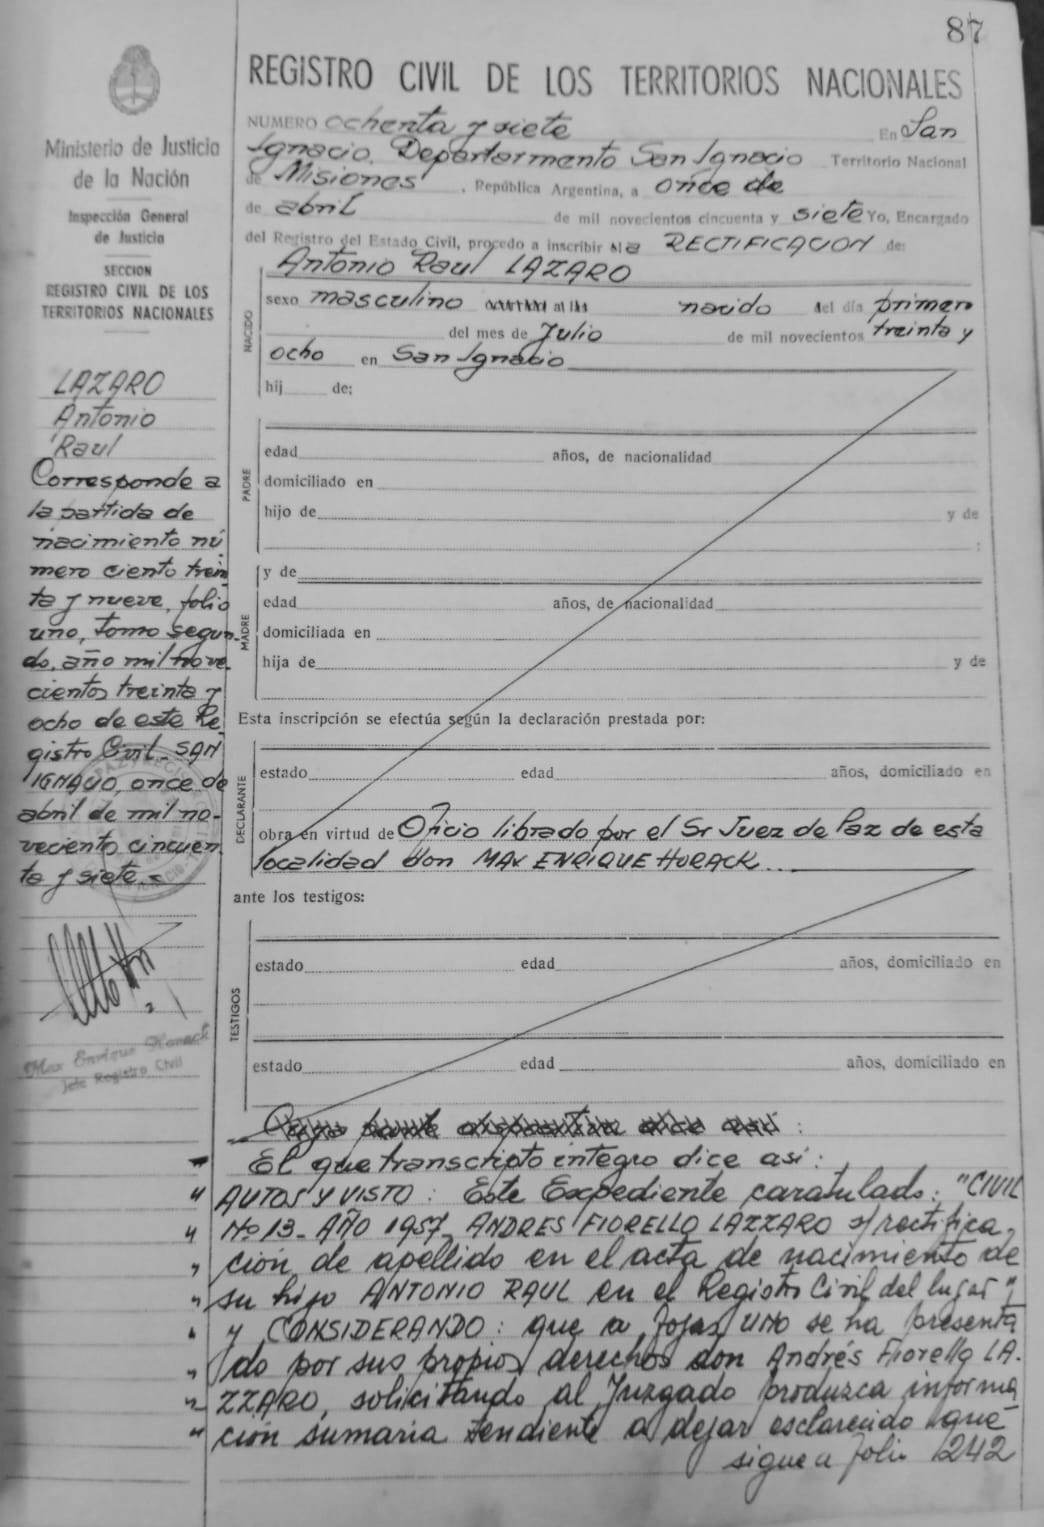 87
REGISTRO CIVIL DE LOS TERRITORIOS NACIONALES
NUMERO ochenta y siete En San
Ignacio, Departarmento San Ignacio Territorio Nacional
de Misiones, República Argentina, a once de
de abril de mil novecientos cincuenta y siete Yo, Encargado
del Registro del Estado Civil, procedo a inscribir la RECTIFICACION de:
Antonio Raul LAZARO
sexo masculino nacido del día primero
del mes de Julio de mil novecientos treinta y
ocho en San Ignacio
hij de;
NACIDO
edad años, de nacionalidad
domiciliado en
hijo de y de
:
PADRE
y de
edad años, de nacionalidad
domiciliada en
hija de y de
MADRE
Esta inscripción se efectúa según la declaración prestada por:
estado edad años, domiciliado en
obra en virtud de Oficio librado por el Sr Juez de Paz de esta
localidad don MAX ENRIQUE HORACK...
DECLARANTE
ante los testigos:
estado edad años, domiciliado en
estado edad años, domiciliado en
TESTIGOS
:
El que transcripto integro dice asi:
" AUTOS Y VISTO: Este Expediente caratulado: "CIVIL
" Nº 13 - AÑO 1957 - ANDRES FIORELLO LAZZARO s/ rectifica-
" ción de apellido en el acta de nacimiento de
" su hijo ANTONIO RAUL en el Registro Civil del lugar",
" y CONSIDERANDO: que a fojas UNO se ha presenta
" do por sus propios derechos don Andrés Fiorello LA-
" ZZARO, solicitando al Juzgado produzca informa
" ción sumaria tendiente a dejar esclarecido que
sigue a folio 242
Ministerio de Justicia
de la Nación
Inspección General
de Justicia
SECCION
REGISTRO CIVIL DE LOS
TERRITORIOS NACIONALES
LAZARO
Antonio
Raul
Corresponde a
la partida de
nacimiento nú
mero ciento trein
ta y nueve, folio
uno, tomo segun-
do, año mil nove-
cientos treinta y
ocho de este Re-
gistro Civil - SAN
IGNACIO, once de
abril de mil no-
veciento cincuen
ta y siete.-
Max Enrique Horack
Jefe Registro Civil